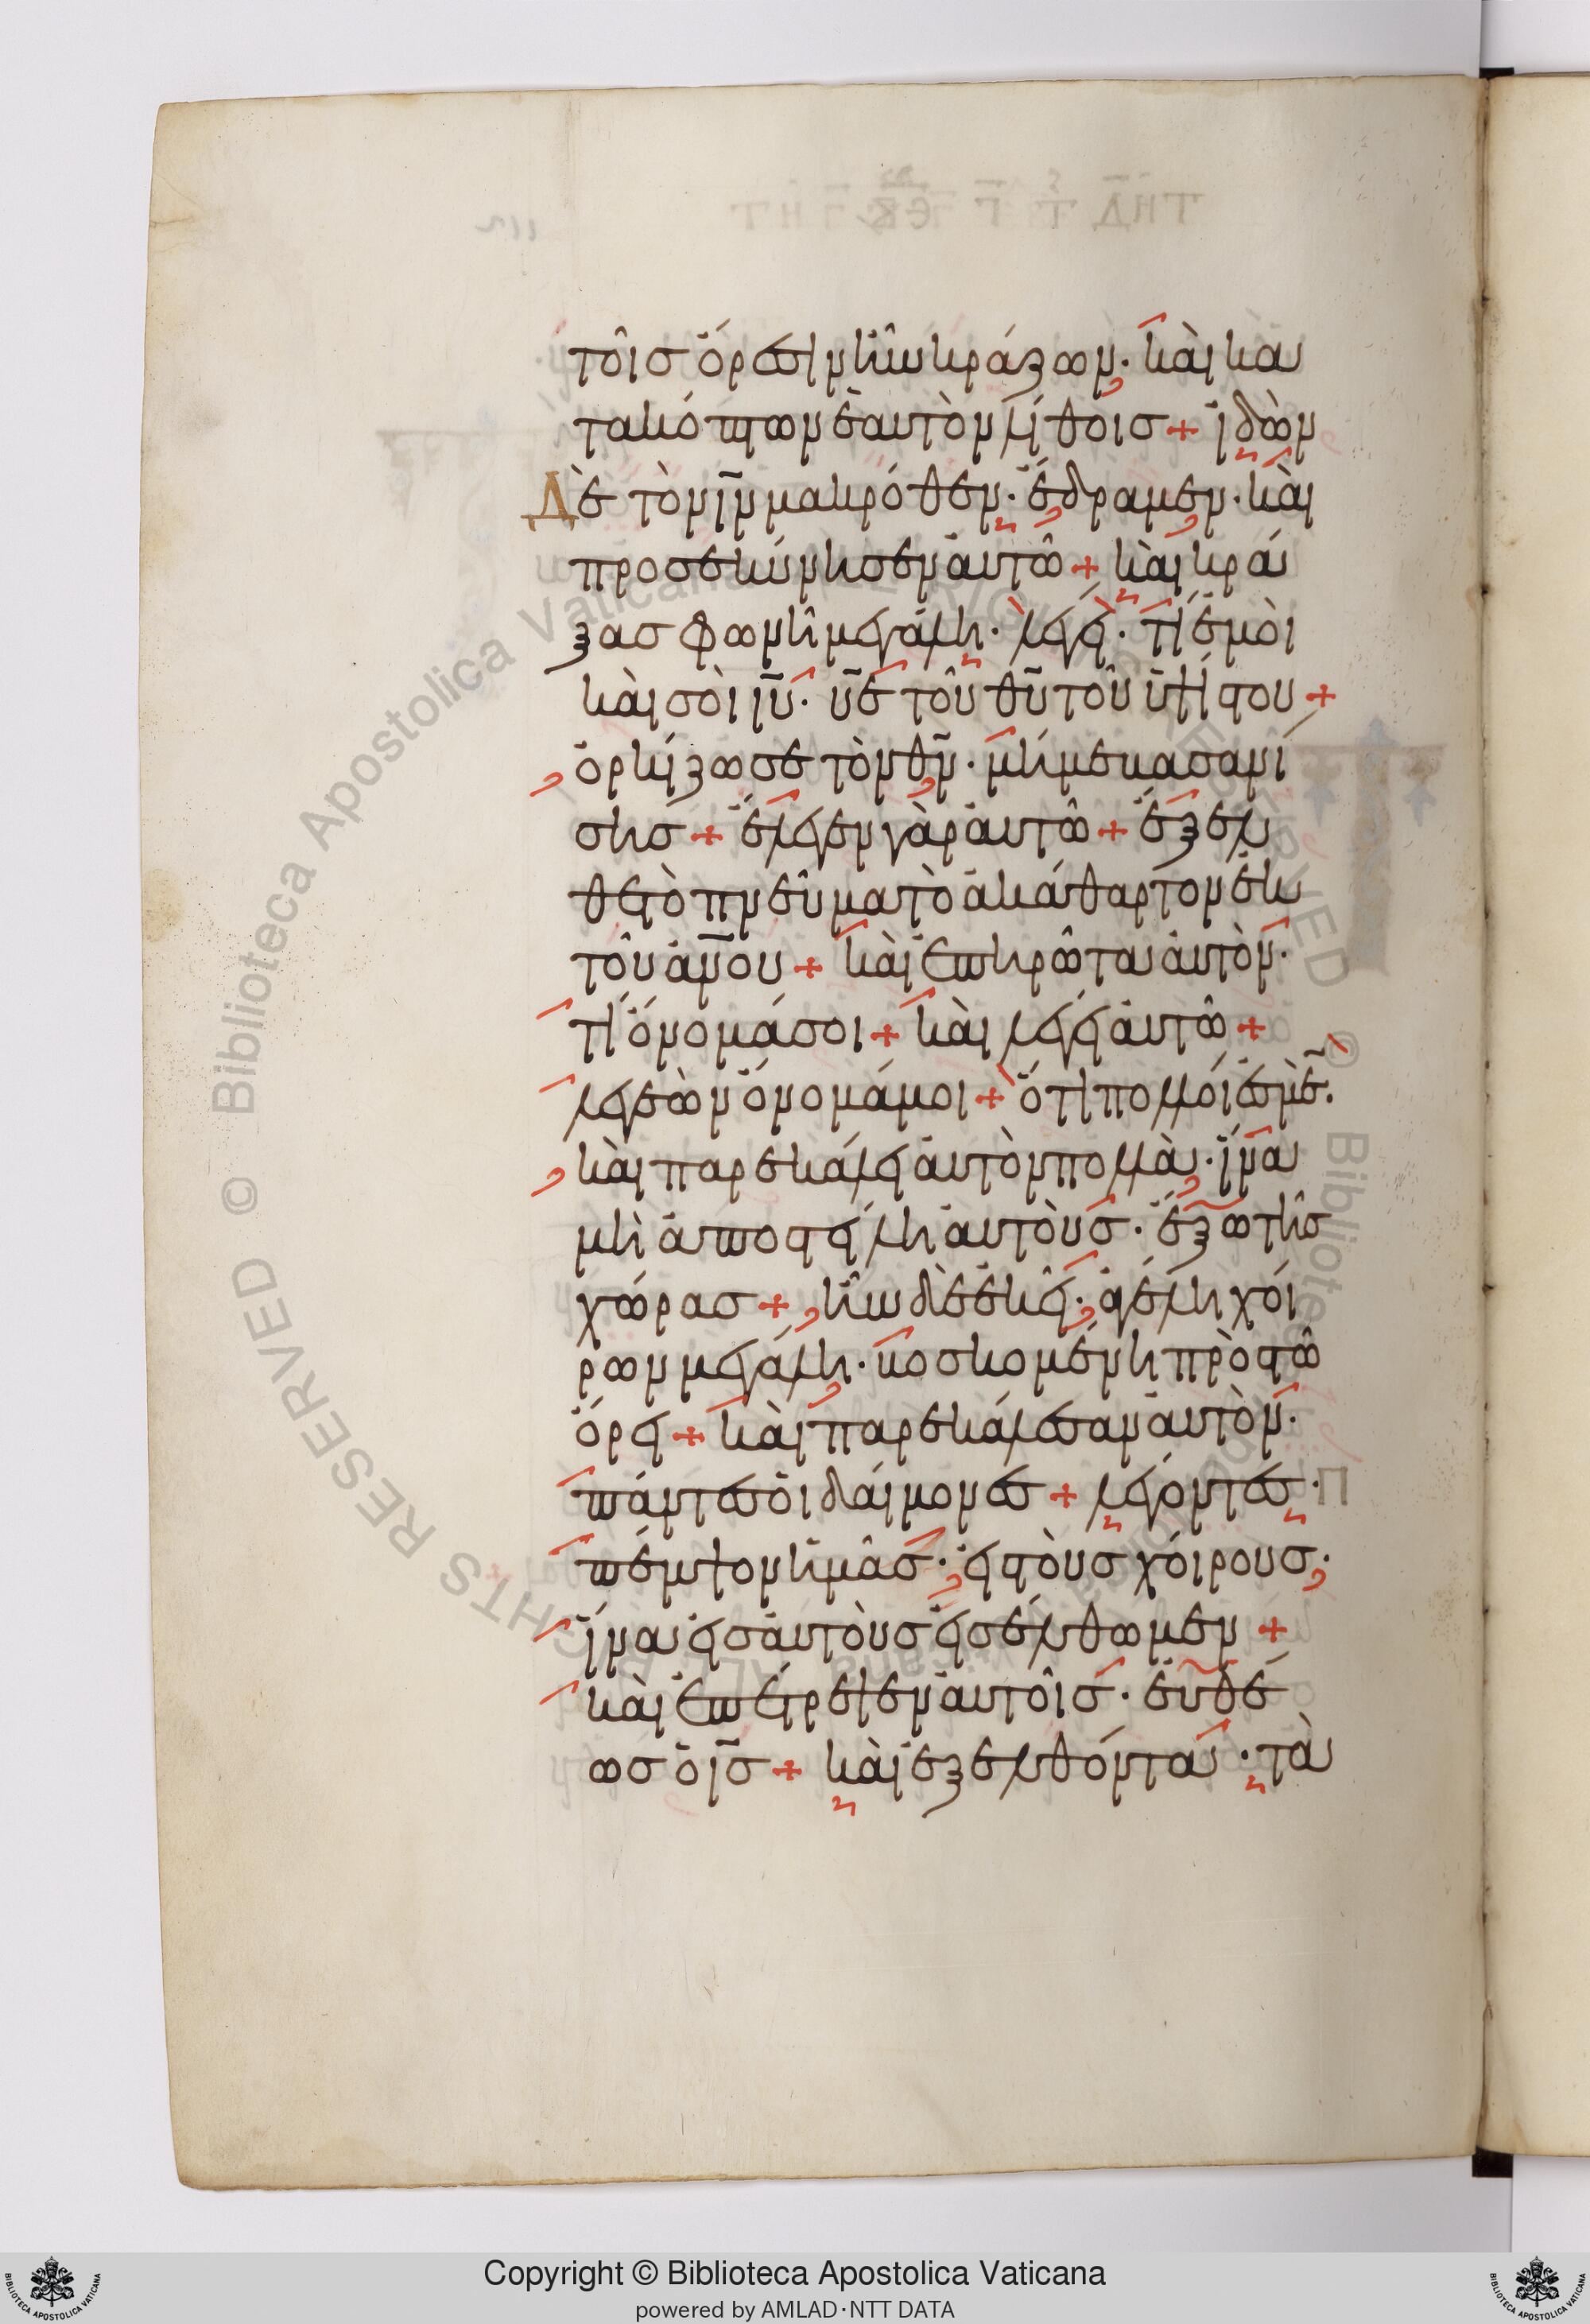 τοῖσ ὄρεσιν ἦν κράζων· καὶ κα
τακόπτων ἑαυτὸν λίθοισ + ἰδὼν
Δὲ τὸν ιν μακρόθεν· ἔδραμεν· καὶ
προσεκύνησεν αὐτῶ + καὶ κρά
ξασ φωνῆ μεγάλη· λέγει· τί ἐμοὶ
καὶ σοὶ ιυ· υε τοῦ θυ τοῦ ὑψίστου +
ὁρκίζω σε τὸν θν· μή με βασανί
σησ + ἔλεγεν γὰρ αὐτῶ + ἔξελ
θε τὸ πνεῦμα τὸ ἀκάθαρτον ἐκ
τοῦ ανου + καὶ ἐπηρώτα αὐτὸν·
τί ὄνομά σοι + καὶ λέγει αὐτῶ +
λεγεὼν ὄνομά μοι + ὅτι πολλοί ἐσμὲν·
καὶ παρεκάλει αὐτὸν πολλὰ· ἵνα
μὴ ἀποστείλη αὐτοὺσ· ἔξω τῆσ
χώρασ + ἦν δὲ ἐκεῖ· ἀγέλη χοί
ρων μεγάλη· βοσκομένη πρὸσ τῶ
ὄρει + καὶ παρεκάλεσαν αὐτὸν·
πάντεσ οἱ δαίμονεσ + λέγοντεσ·
πέμψον ἡμᾶσ· εἰσ τοὺσ χοίρουσ·
ἵνα εἰσ αὐτοὺσ εἰσέλθωμεν +
καὶ ἐπέτρεψεν αὐτοῖσ· εὐθέ
ωσ ὁ ισ + καὶ ἐξελθόντα· τὰ
Copyright © Biblioteca Apostolica Vaticana
powered by AMLAD·NTT DATA